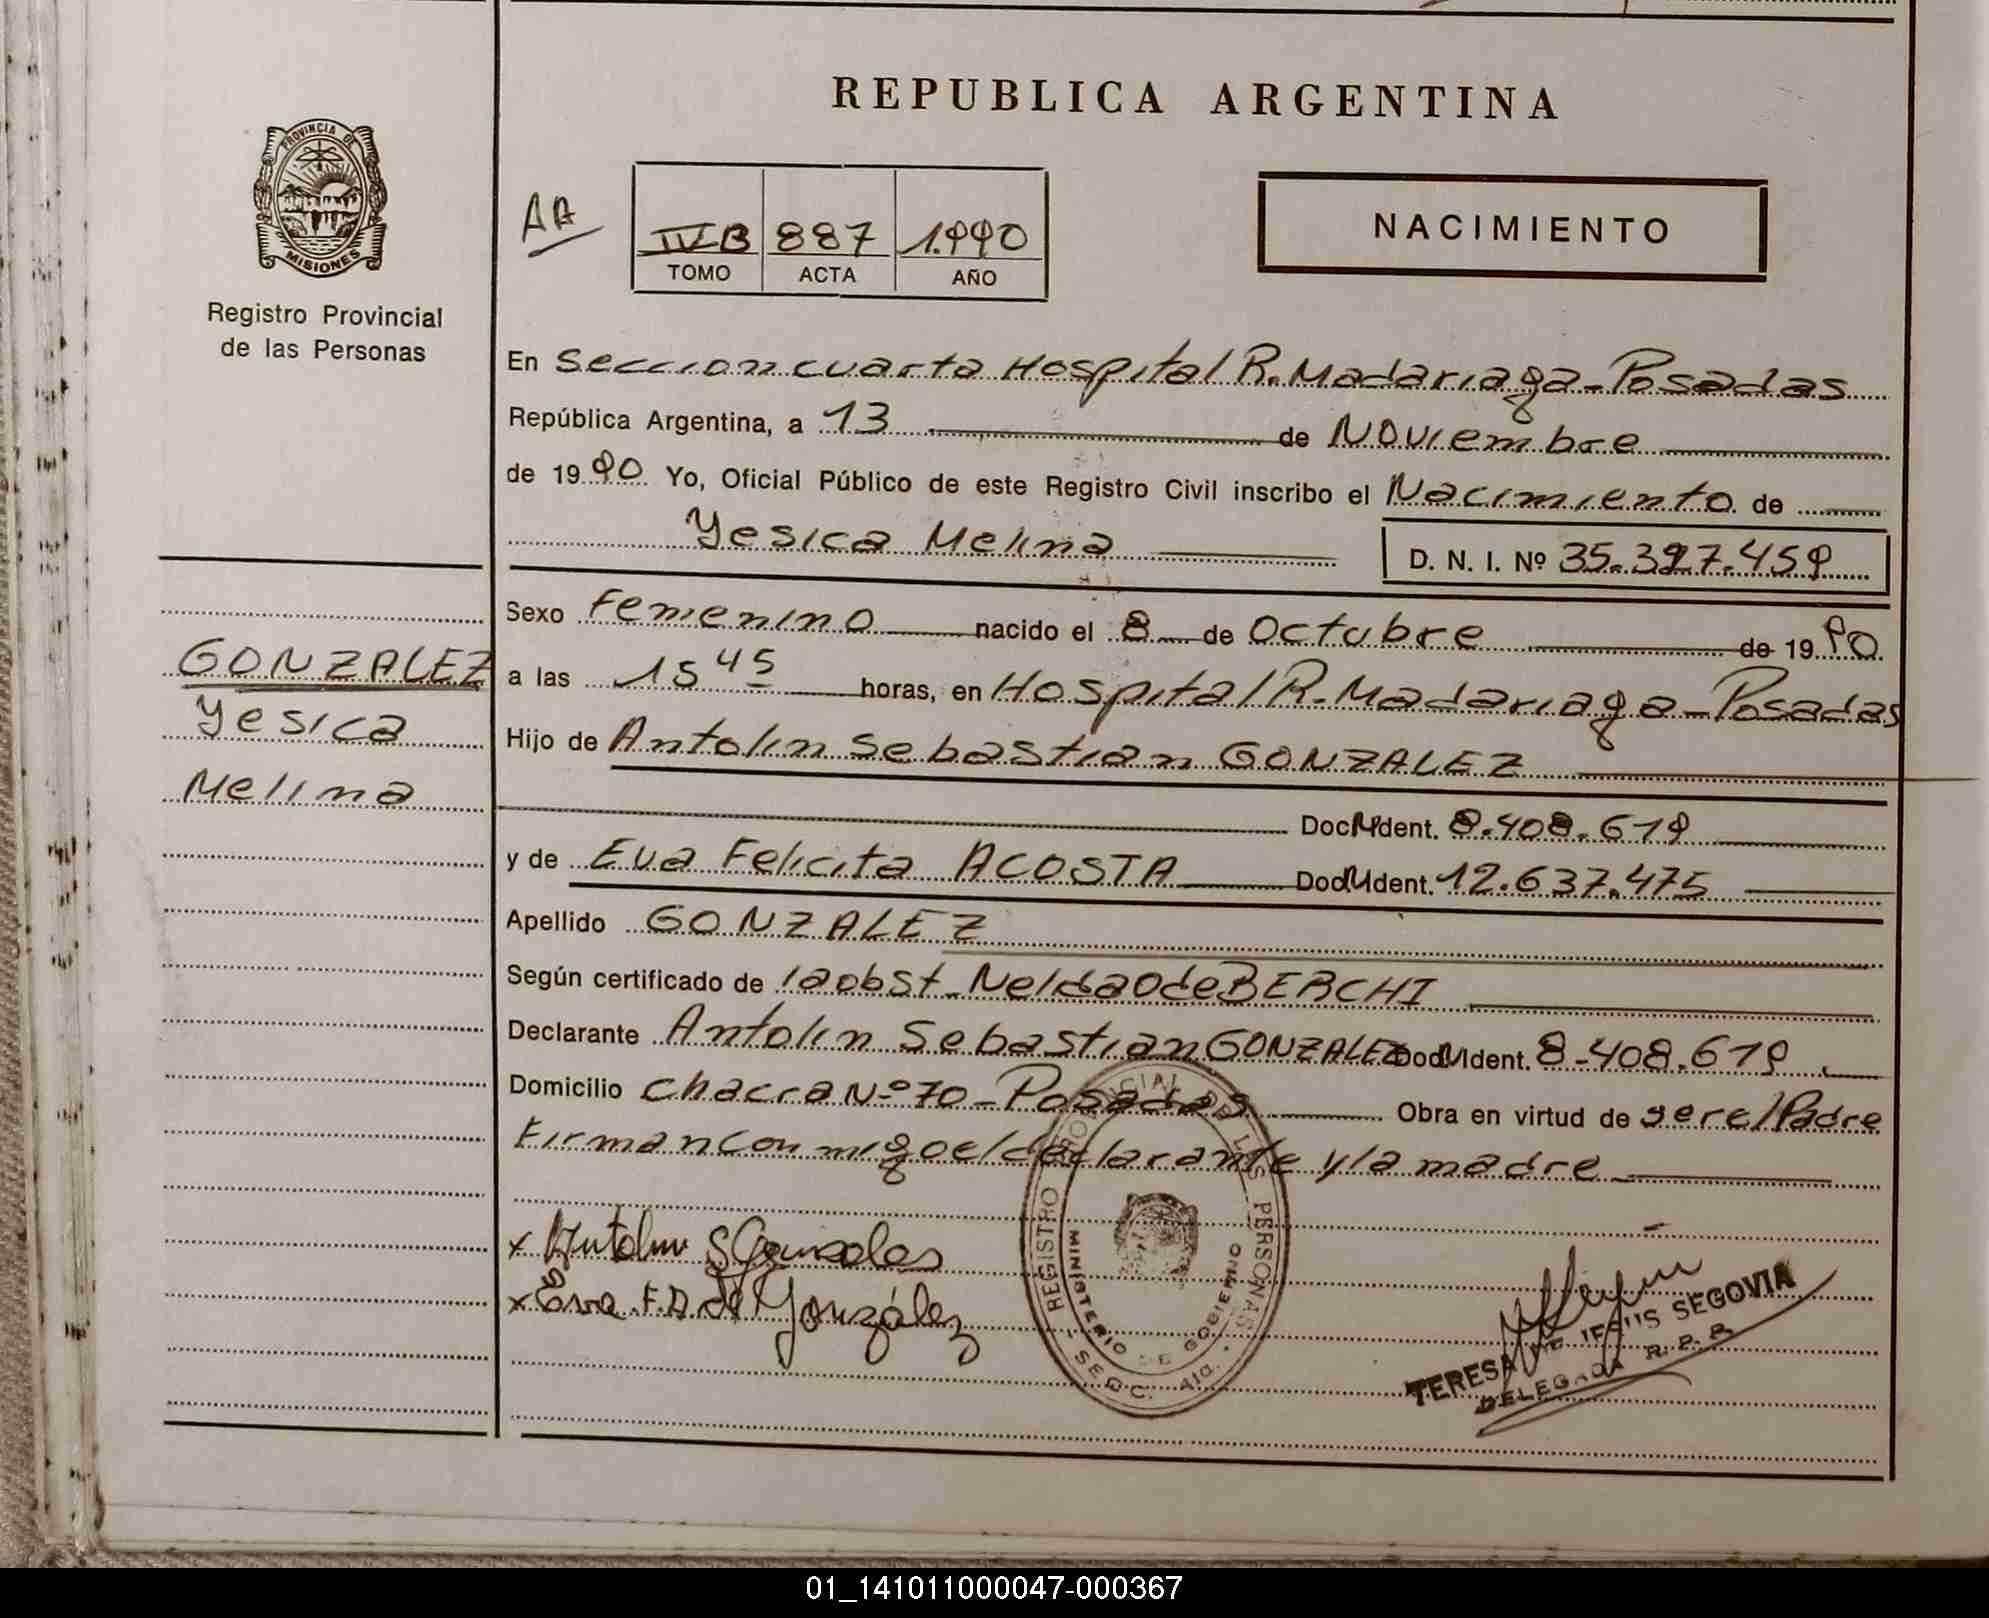 REPUBLICA ARGENTINA
PROVINCIA DE
MISIONES
Registro Provincial
de las Personas
AA
IV-B 887 1.990
TOMO ACTA AÑO
NACIMIENTO
En Seccion cuarta Hospital R. Madariaga - Posadas
República Argentina, a 13 de Noviembre
de 1990 Yo, Oficial Público de este Registro Civil inscribo el Nacimiento de
Yesica Melina D. N. I. Nº 35.327.459
Sexo Femenino nacido el 8 de Octubre de 1990
GONZALEZ
Yesica
Melina
a las 15 45 horas, en Hospital R. Madariaga - Posadas
Hijo de Antolin Sebastian GONZALEZ
Doc. Ident. 8.408.619
y de Eva Felicita ACOSTA Doc. Ident. 12.637.475
Apellido GONZALEZ
Según certificado de la obst. Nelida O de BERCHI
Declarante Antolin Sebastian GONZALEZ Doc. Ident. 8.408.619
Domicilio Chacra Nº 70 - Posadas Obra en virtud de ser el Padre
Firman conmigo el declarante y la madre
x Antolin S Gonzales
x Eva F. A. de González
REGISTRO PROVINCIAL DE LAS PERSONAS
MINISTERIO DE GOBIERNO
SECC. 4ta.
TERESA DE JESUS SEGOVIA
DELEGADA R. P. P.
01_141011000047-000367